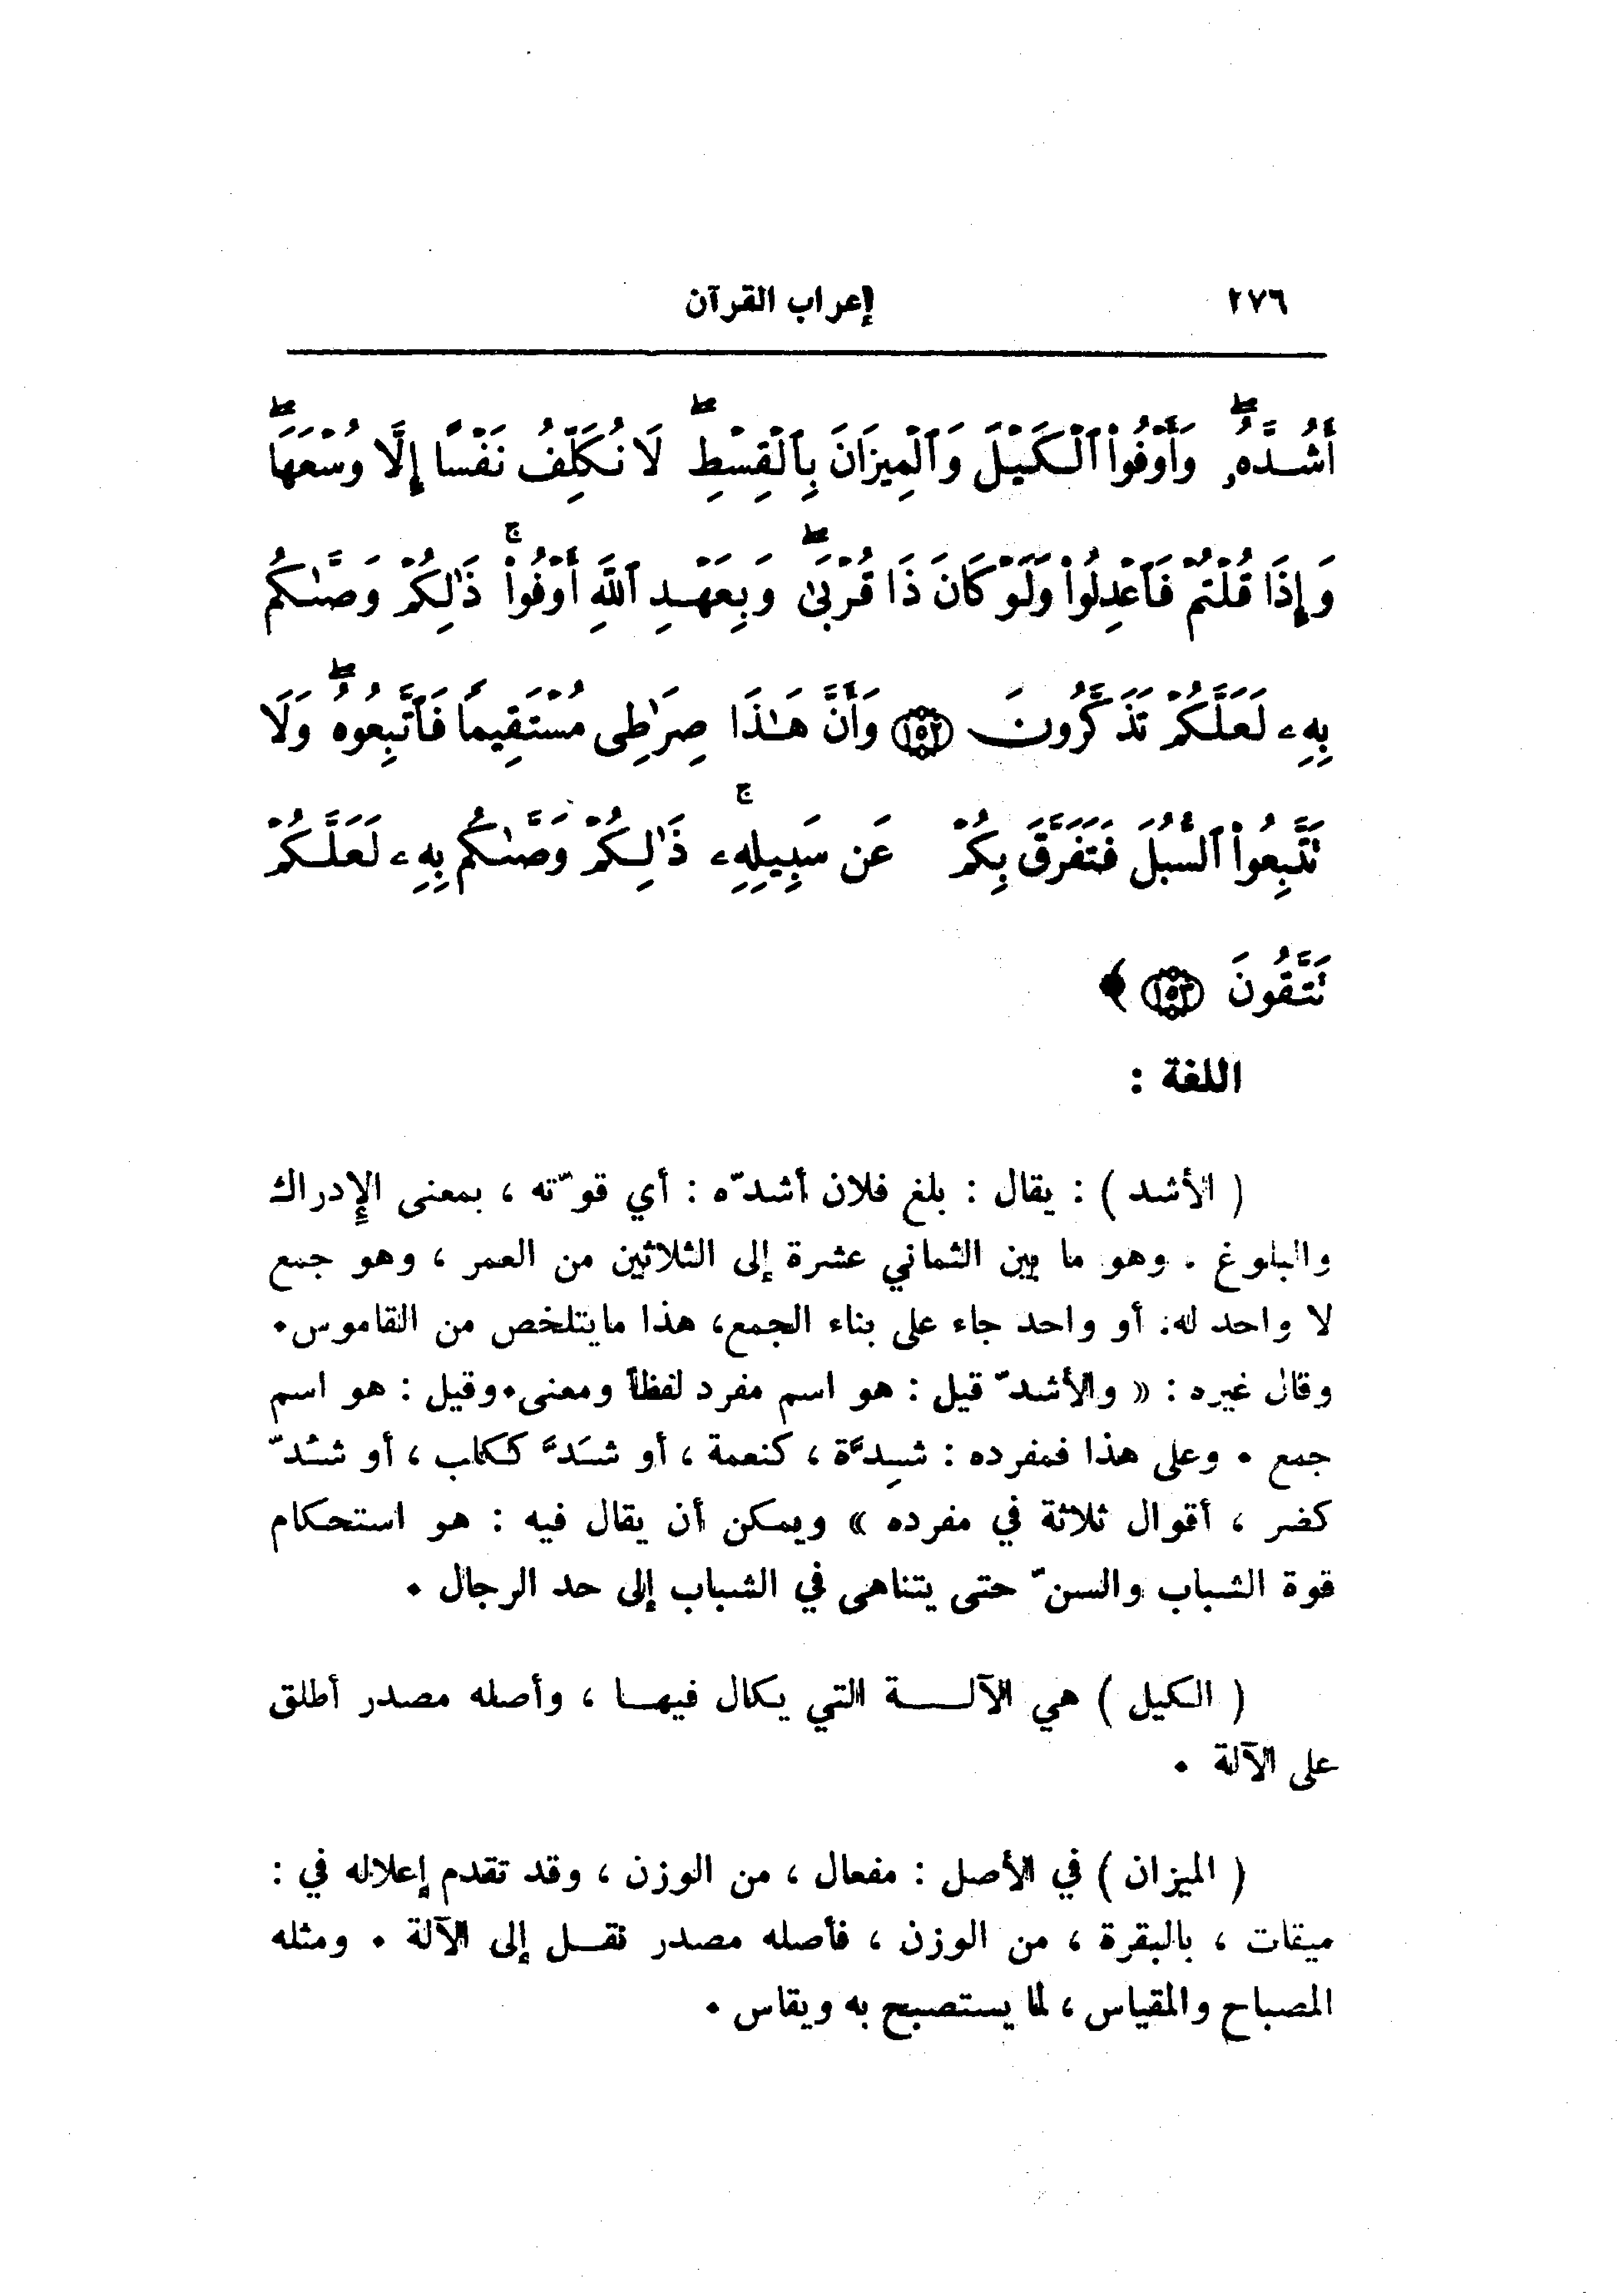 ٢٧٦ إعراب القرآن
أَشُدَّهُۥۖ وَأَوْفُوا۟ ٱلْكَيْلَ وَٱلْمِيزَانَ بِٱلْقِسْطِۖ لَا نُكَلِّفُ نَفْسًا إِلَّا وُسْعَهَاۖ
وَإِذَا قُلْتُمْ فَٱعْدِلُوا۟ وَلَوْ كَانَ ذَا قُرْبَىٰۖ وَبِعَهْدِ ٱللَّهِ أَوْفُوا۟ۚ ذَٰلِكُمْ وَصَّىٰكُم
بِهِۦ لَعَلَّكُمْ تَذَكَّرُونَ ١٥٢ وَأَنَّ هَـٰذَا صِرَٰطِى مُسْتَقِيمًا فَٱتَّبِعُوهُۖ وَلَا
تَتَّبِعُوا۟ ٱلسُّبُلَ فَتَفَرَّقَ بِكُمْ عَن سَبِيلِهِۦۚ ذَٰلِكُمْ وَصَّىٰكُم بِهِۦ لَعَلَّكُمْ
تَتَّقُونَ ١٥٣ ﴾
اللغة :
( الأشد ) : يقال : بلغ فلان أشدّه : أي قوّته ، بمعنى الإدراك
والبلوغ . وهو ما بين الثماني عشرة إلى الثلاثين من العمر ، وهو جمع
لا واحد له. أو واحد جاء على بناء الجمع، هذا مايتلخص من القاموس.
وقال غيره : « والأشدّ قيل : هو اسم مفرد لفظاً ومعنى. وقيل : هو اسم
جمع . وعلى هذا فمفرده : شِدَّة ، كنعمة ، أو شَدَّ ككلب ، أو شُدّ
كضر ، أقوال ثلاثة في مفرده » ويمكن أن يقال فيه : هو استحكام
قوة الشباب والسنّ حتى يتناهى في الشباب إلى حد الرجال .
( الكيل ) هي الآلـــة التي يكال فيهـا ، وأصله مصدر أطلق
على الآلة .
( الميزان ) في الأصل : مفعال ، من الوزن ، وقد تقدم إعلاله في :
ميقات ، بالبقرة ، من الوزن ، فأصله مصدر نقـل إلى الآلة . ومثله
المصباح والمقياس ، لما يستصبح به ويقاس .